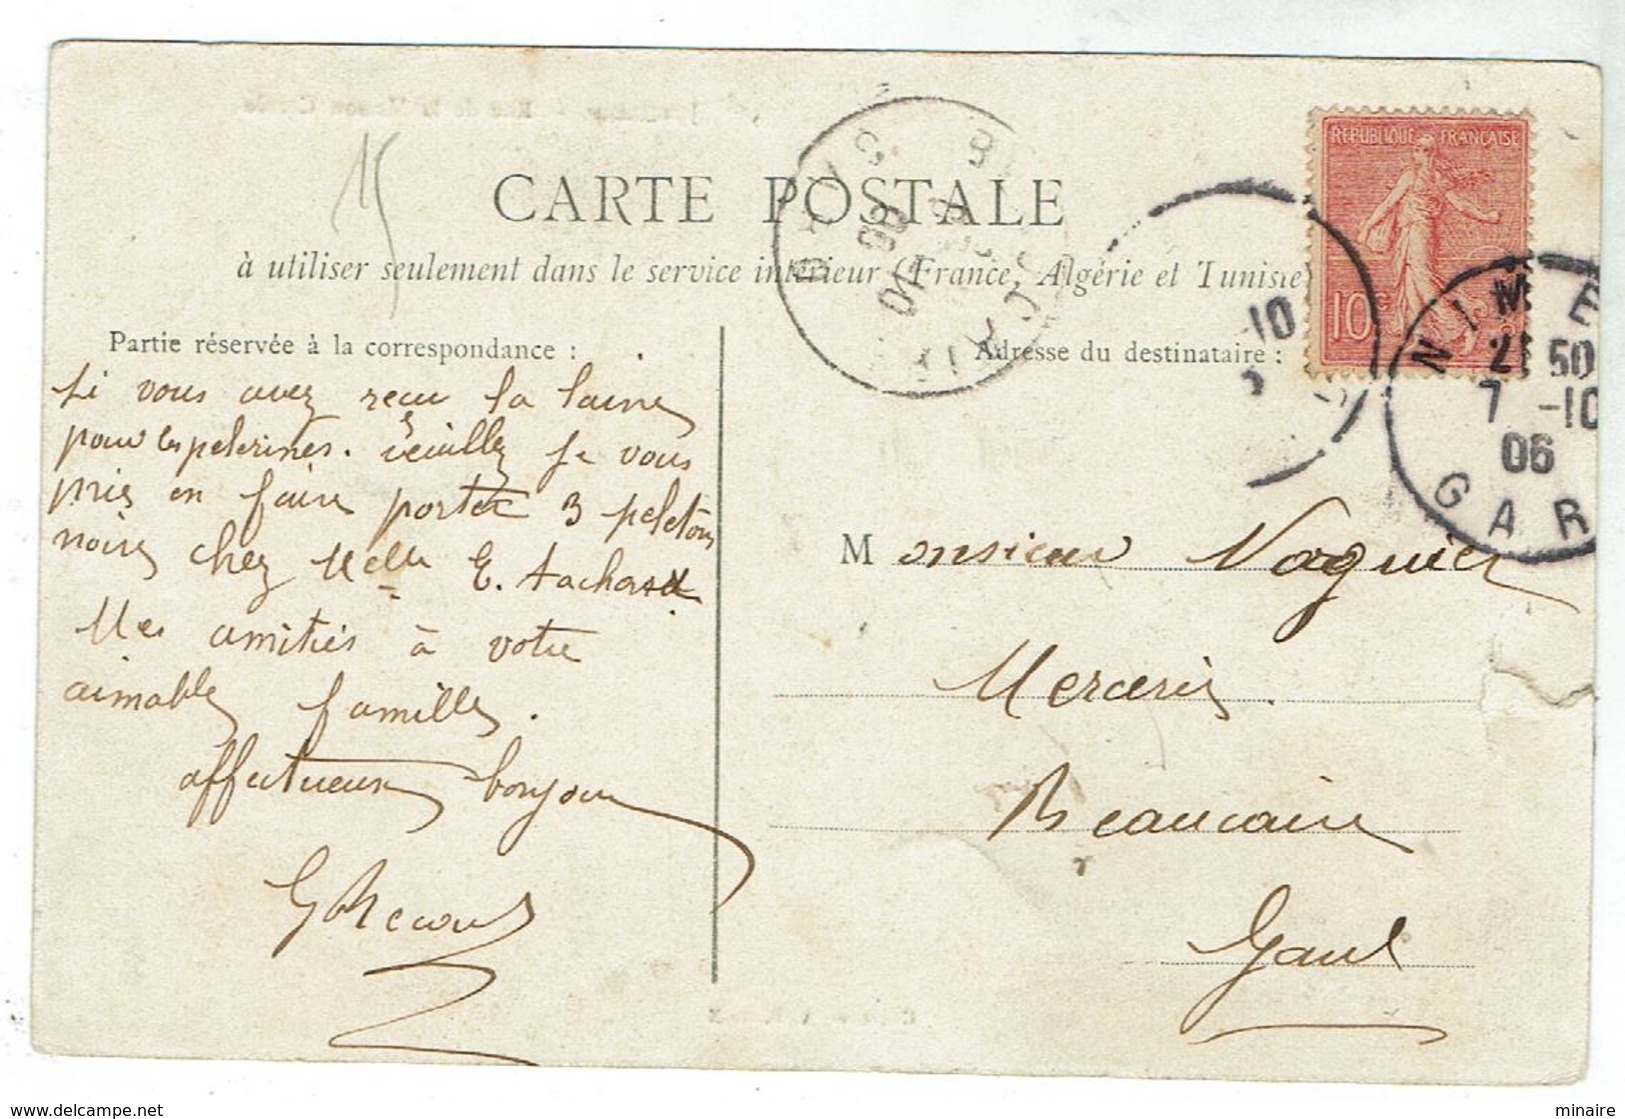 CARTE POSTALE
à utiliser seulement dans le service intérieur (France, Algérie et Tunisie
Partie réservée à la correspondance :
Si vous avez reçu la laine
pour les pelerines. veuillez je vous
prie en faire porter 3 pelotons
noires chez Melle E. Tachard
Mes amitiés à votre
aimable famille.
affectueux bonjour
REPUBLIQUE FRANÇAISE
10c
NIMES
21 50
7 -10
06
GAR
-10
06
Adresse du destinataire :
Monsieur Noguier
Mercerie.
Beaucaire
Gard
15
www.delcampe.net
minaire